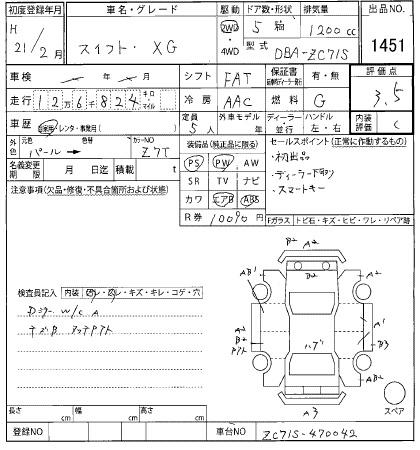 初度登録年月 車名・グレード 駆動 ドア数・形状 排気量 出品NO.
H 21/2月 スイフト・XG 2WD・4WD 5 1200cc 1451
型式 DBA-ZC71S
車検 シフト FAT 保証書 有・無 評価点
走行 12万6千824 キロ マイル 冷房 AAC 燃料 G 3.5
車歴 自家用/レンタ・事業用( ) 定員 5人 外車モデル年 ディーラー・並行 ハンドル 左・右 内装評価 C
外色 元色 パール→ 色替 カラーNO Z7T
装備品(純正品に限る) セールスポイント(正常に作動するもの)
名義変更期限 月 日迄 積載 t PS PW AW ・初出品
注意事項(欠品・修復・不具合箇所および状態) SR TV ナビ ・ディーラー下取り
カワ エアB ABS ・スマートキー
R券 10090円 Fガラス トビ石・キズ・ヒビ・ワレ・リペア跡
B2 A2
AB1 B2 A2
検査員記入 内装 キズ・キレ・コゲ・穴
Dミラー W/C A A2 A1
B2 ハブ B3
AB2 A2
A3 スペア
長さ cm 幅 cm 高さ cm
登録NO 車台NO ZC71S-470042